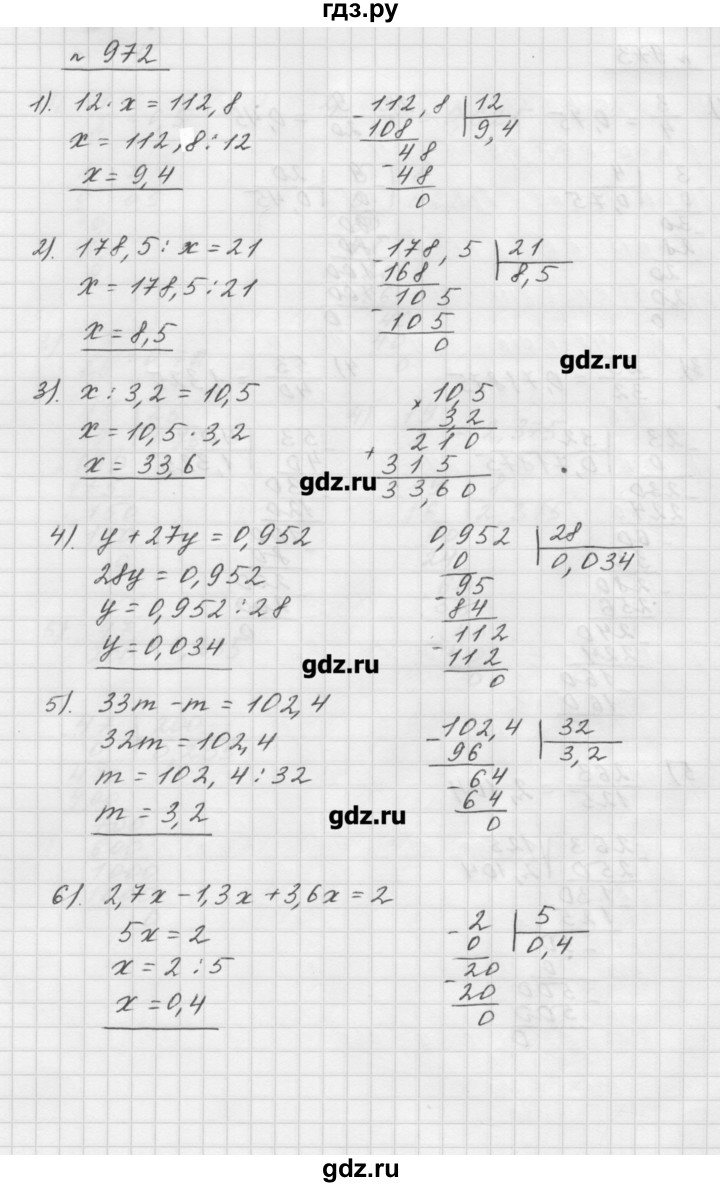 гдз.ру
№ 972
1). 12·x = 112,8
x = 112,8:12
x = 9,4
-112,8 |12
108 9,4
48
-48
0
2). 178,5 : x = 21
x = 178,5:21
x = 8,5
-178,5 |21
168 8,5
-105
105
0
gdz.ru
3). x : 3,2 = 10,5
x = 10,5·3,2
x = 33,6
×10,5
3,2
210
+315
33,60
gdz.ru
4). y + 27y = 0,952
28y = 0,952
y = 0,952:28
y = 0,034
0,952 |28
0 0,034
-95
84
-112
112
0
gdz.ru
5). 33m - m = 102,4
32m = 102,4
m = 102,4:32
m = 3,2
-102,4 |32
96 3,2
-64
64
0
gdz.ru
6). 2,7x - 1,3x + 3,6x = 2
5x = 2
x = 2:5
x = 0,4
-2 |5
0 0,4
-20
20
0
gdz.ru